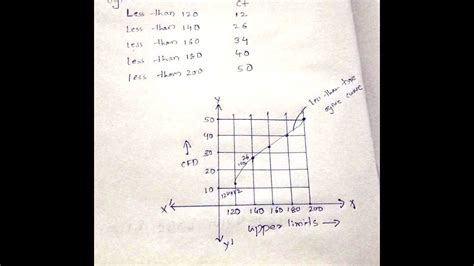 cf
Less than 120 12
Less than 140 26
Less than 160 34
Less than 180 40
Less than 200 50
Y
less than type
ogive curve
50
40
30
20
10
CFD
26
X' 120 140 160 180 200 X
upper limits
Y'